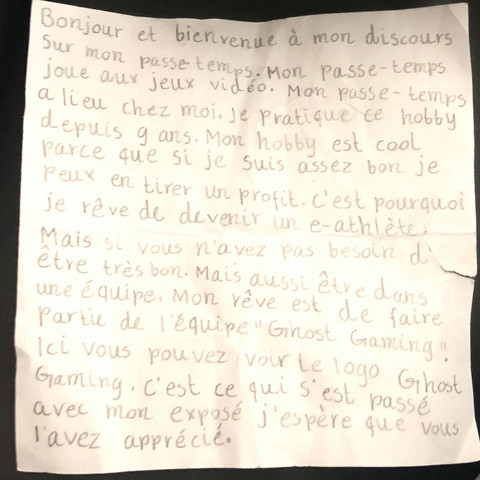 Bonjour et bienvenue à mon discours
Sur mon passe-temps. Mon passe-temps
joue aux jeux vidéo. Mon passe-temps
a lieu chez moi. Je pratique ce hobby
depuis 9 ans. Mon hobby est cool
parce que si je suis assez bon je
peux en tirer un profit. C'est pourquoi
je rêve de devenir un e-athlète.
Mais si vous n'avez pas besoin d'
être très bon. Mais aussi être dans
une équipe. Mon rêve est de faire
partie de l'équipe "Ghost Gaming".
Ici vous pouvez voir le logo Ghost
Gaming. C'est ce qui s'est passé
avec mon exposé j'espère que vous
l'avez apprécié.